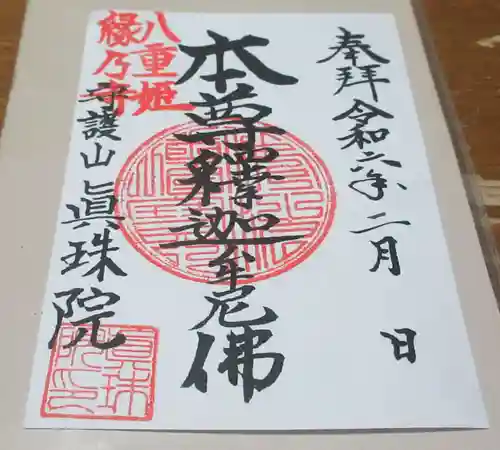 奉拝 令和六年 二月 日
本尊釋迦牟尼佛
八重姫
縁乃寺
守護山 眞珠院